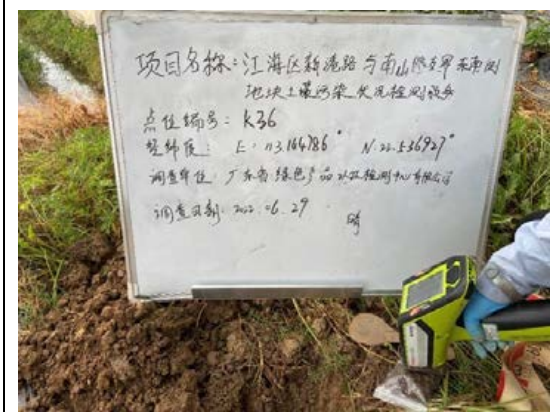 项目名称:江海区新港路与南山路交界东南侧
地块土壤污染状况检测服务
点位编号:K36
经纬度: E:113.164786° N:22.536927°
调查单位:广东省绿色产品认证检测中心有限公司
调查日期:2022.06.29 晴